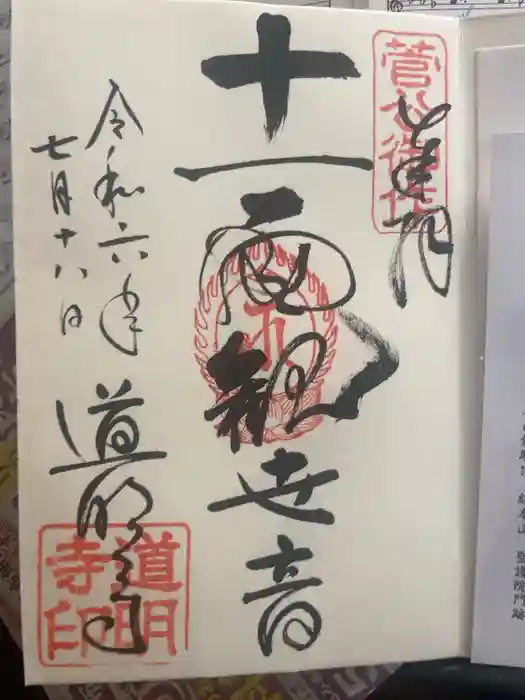 奉拝
菅公御址
十一面観世音
令和六年
七月十八日
道明寺
道明寺印
聖護院門跡